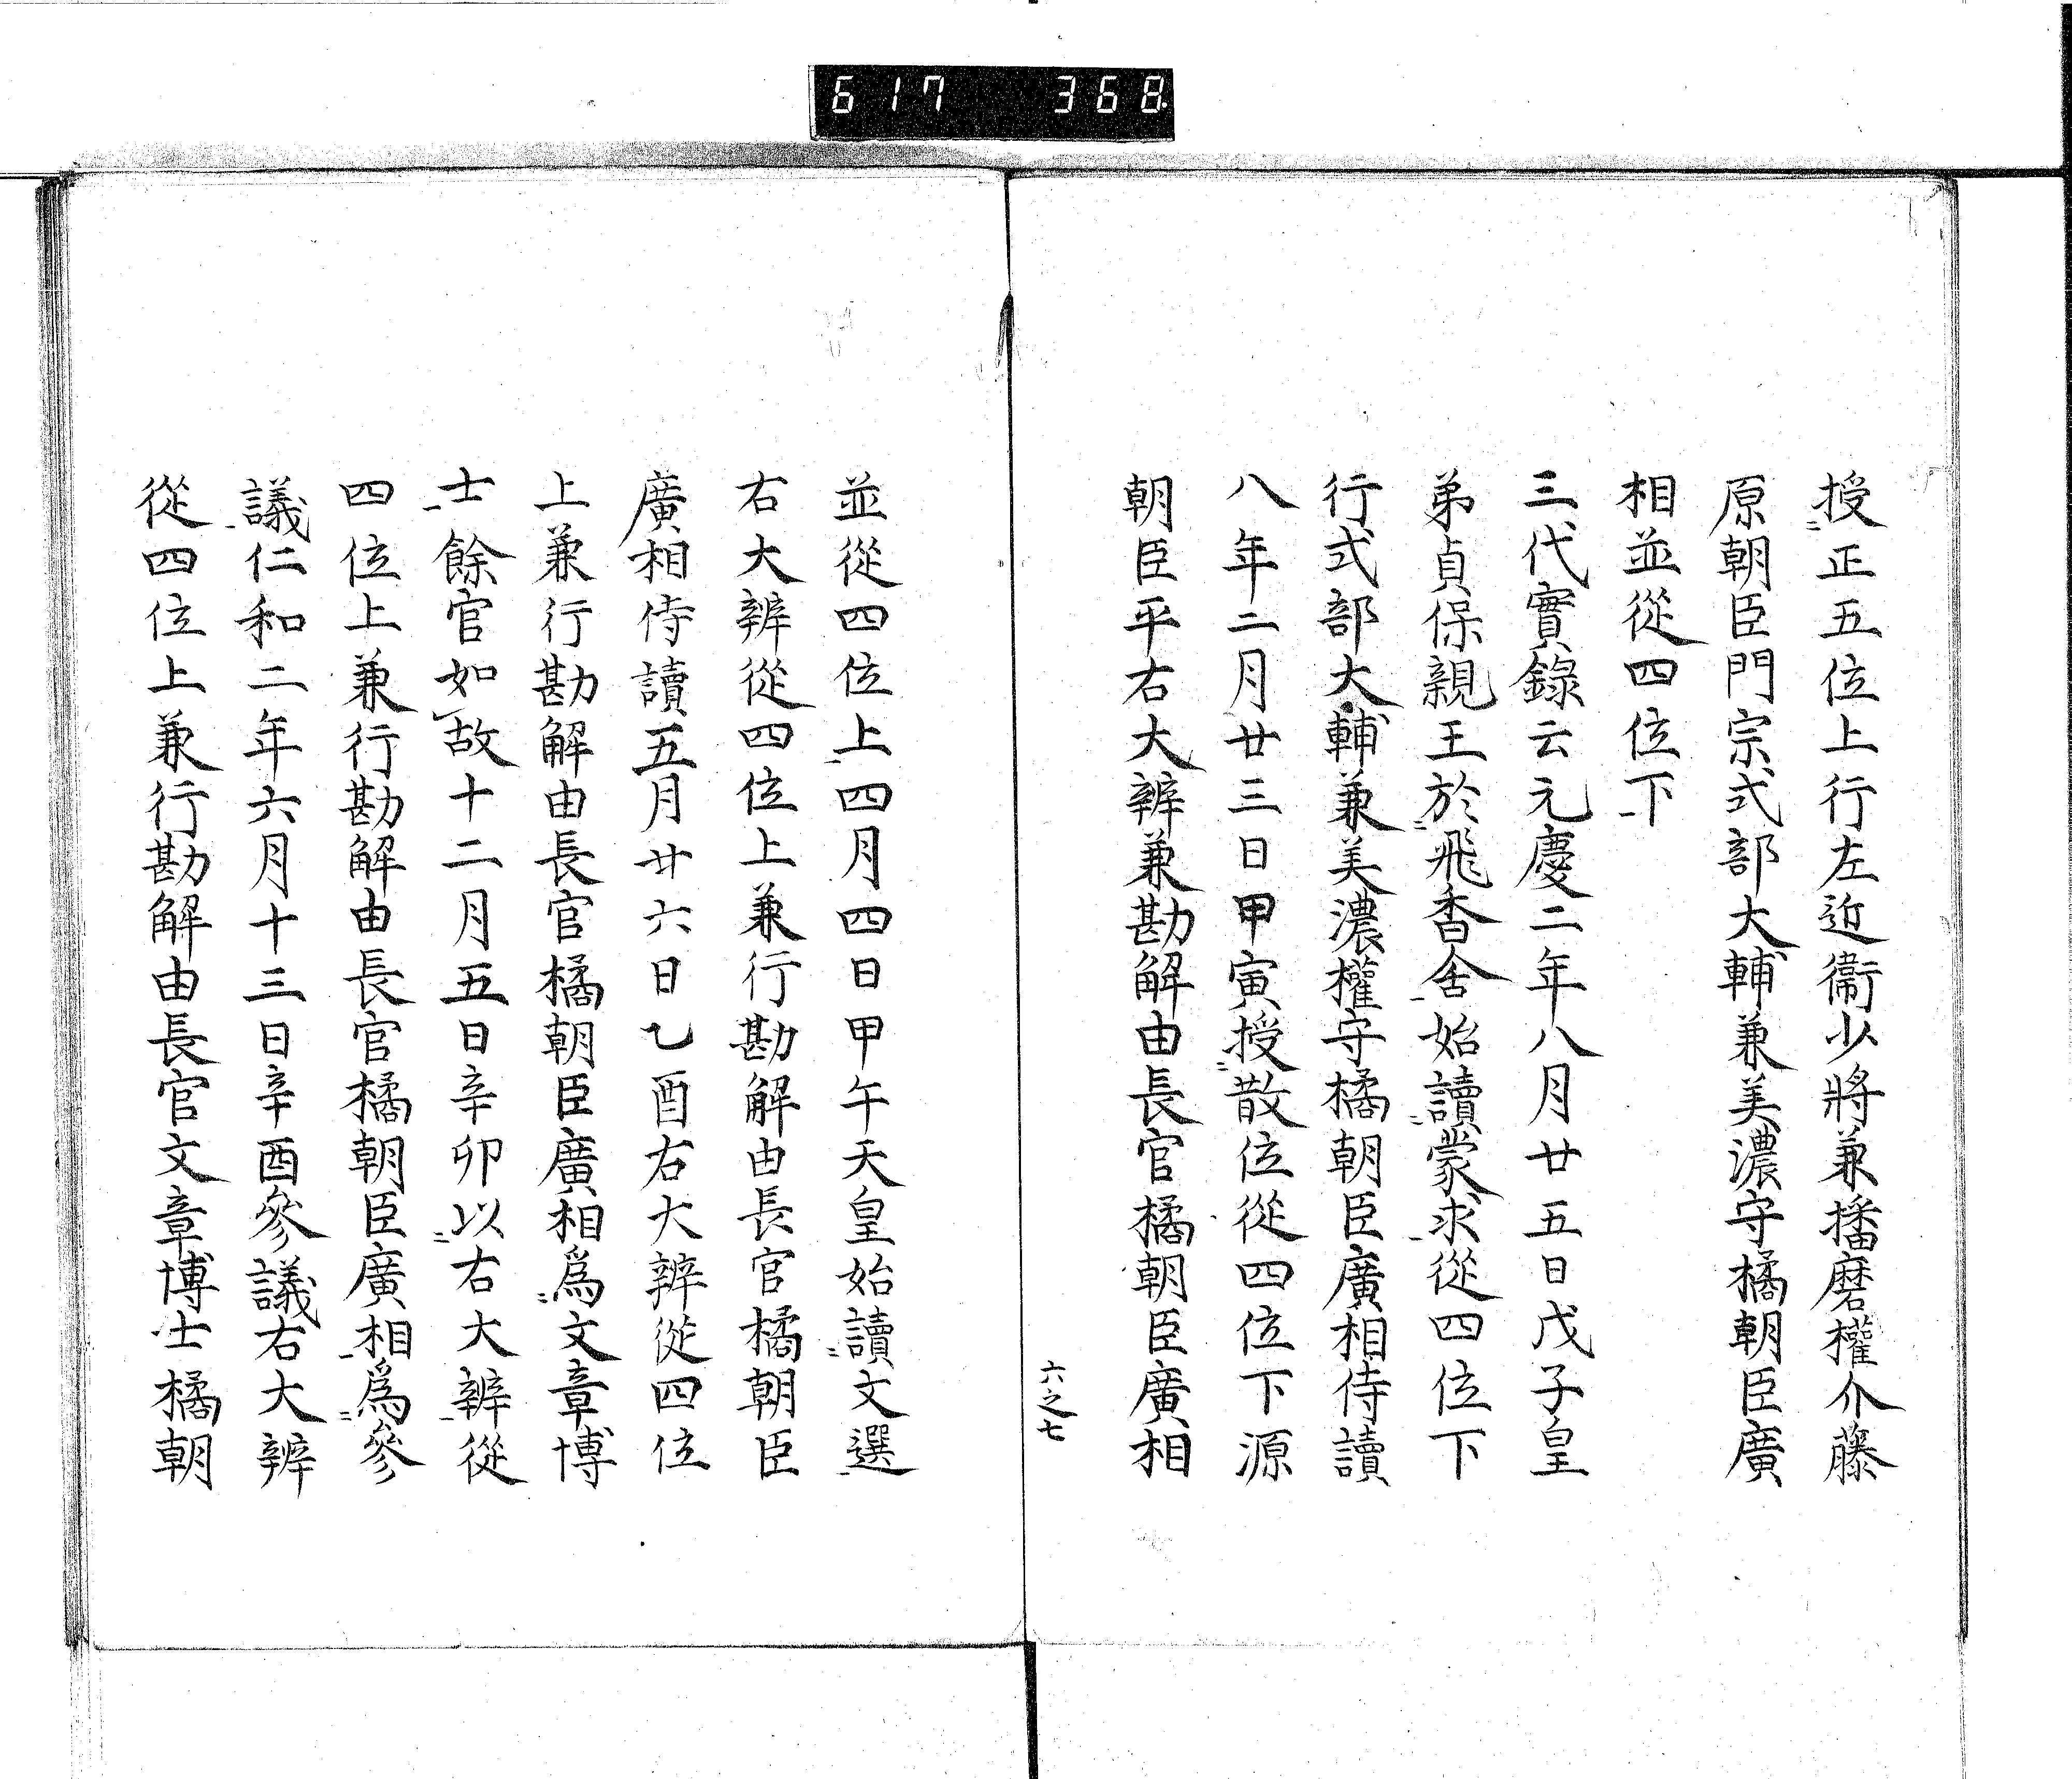 617 368
授正五位上行左近衞少將兼播磨權介藤
原朝臣門宗式部大輔兼美濃守橘朝臣廣
相並從四位下
三代實錄云元慶二年八月廿五日戊子皇
弟貞保親王於飛香舍始讀蒙求從四位下
行式部大輔兼美濃權守橘朝臣廣相侍讀
八年二月廿三日甲寅授散位從四位下源
朝臣平右大辨兼勘解由長官橘朝臣廣相
六之七
並從四位上四月四日甲午天皇始讀文選
右大辨從四位上兼行勘解由長官橘朝臣
廣相侍讀五月廿六日乙酉右大辨從四位
上兼行勘解由長官橘朝臣廣相爲文章博
士餘官如故十二月五日辛卯以右大辨從
四位上兼行勘解由長官橘朝臣廣相爲參
議仁和二年六月十三日辛酉參議右大辨
從四位上兼行勘解由長官文章博士橘朝